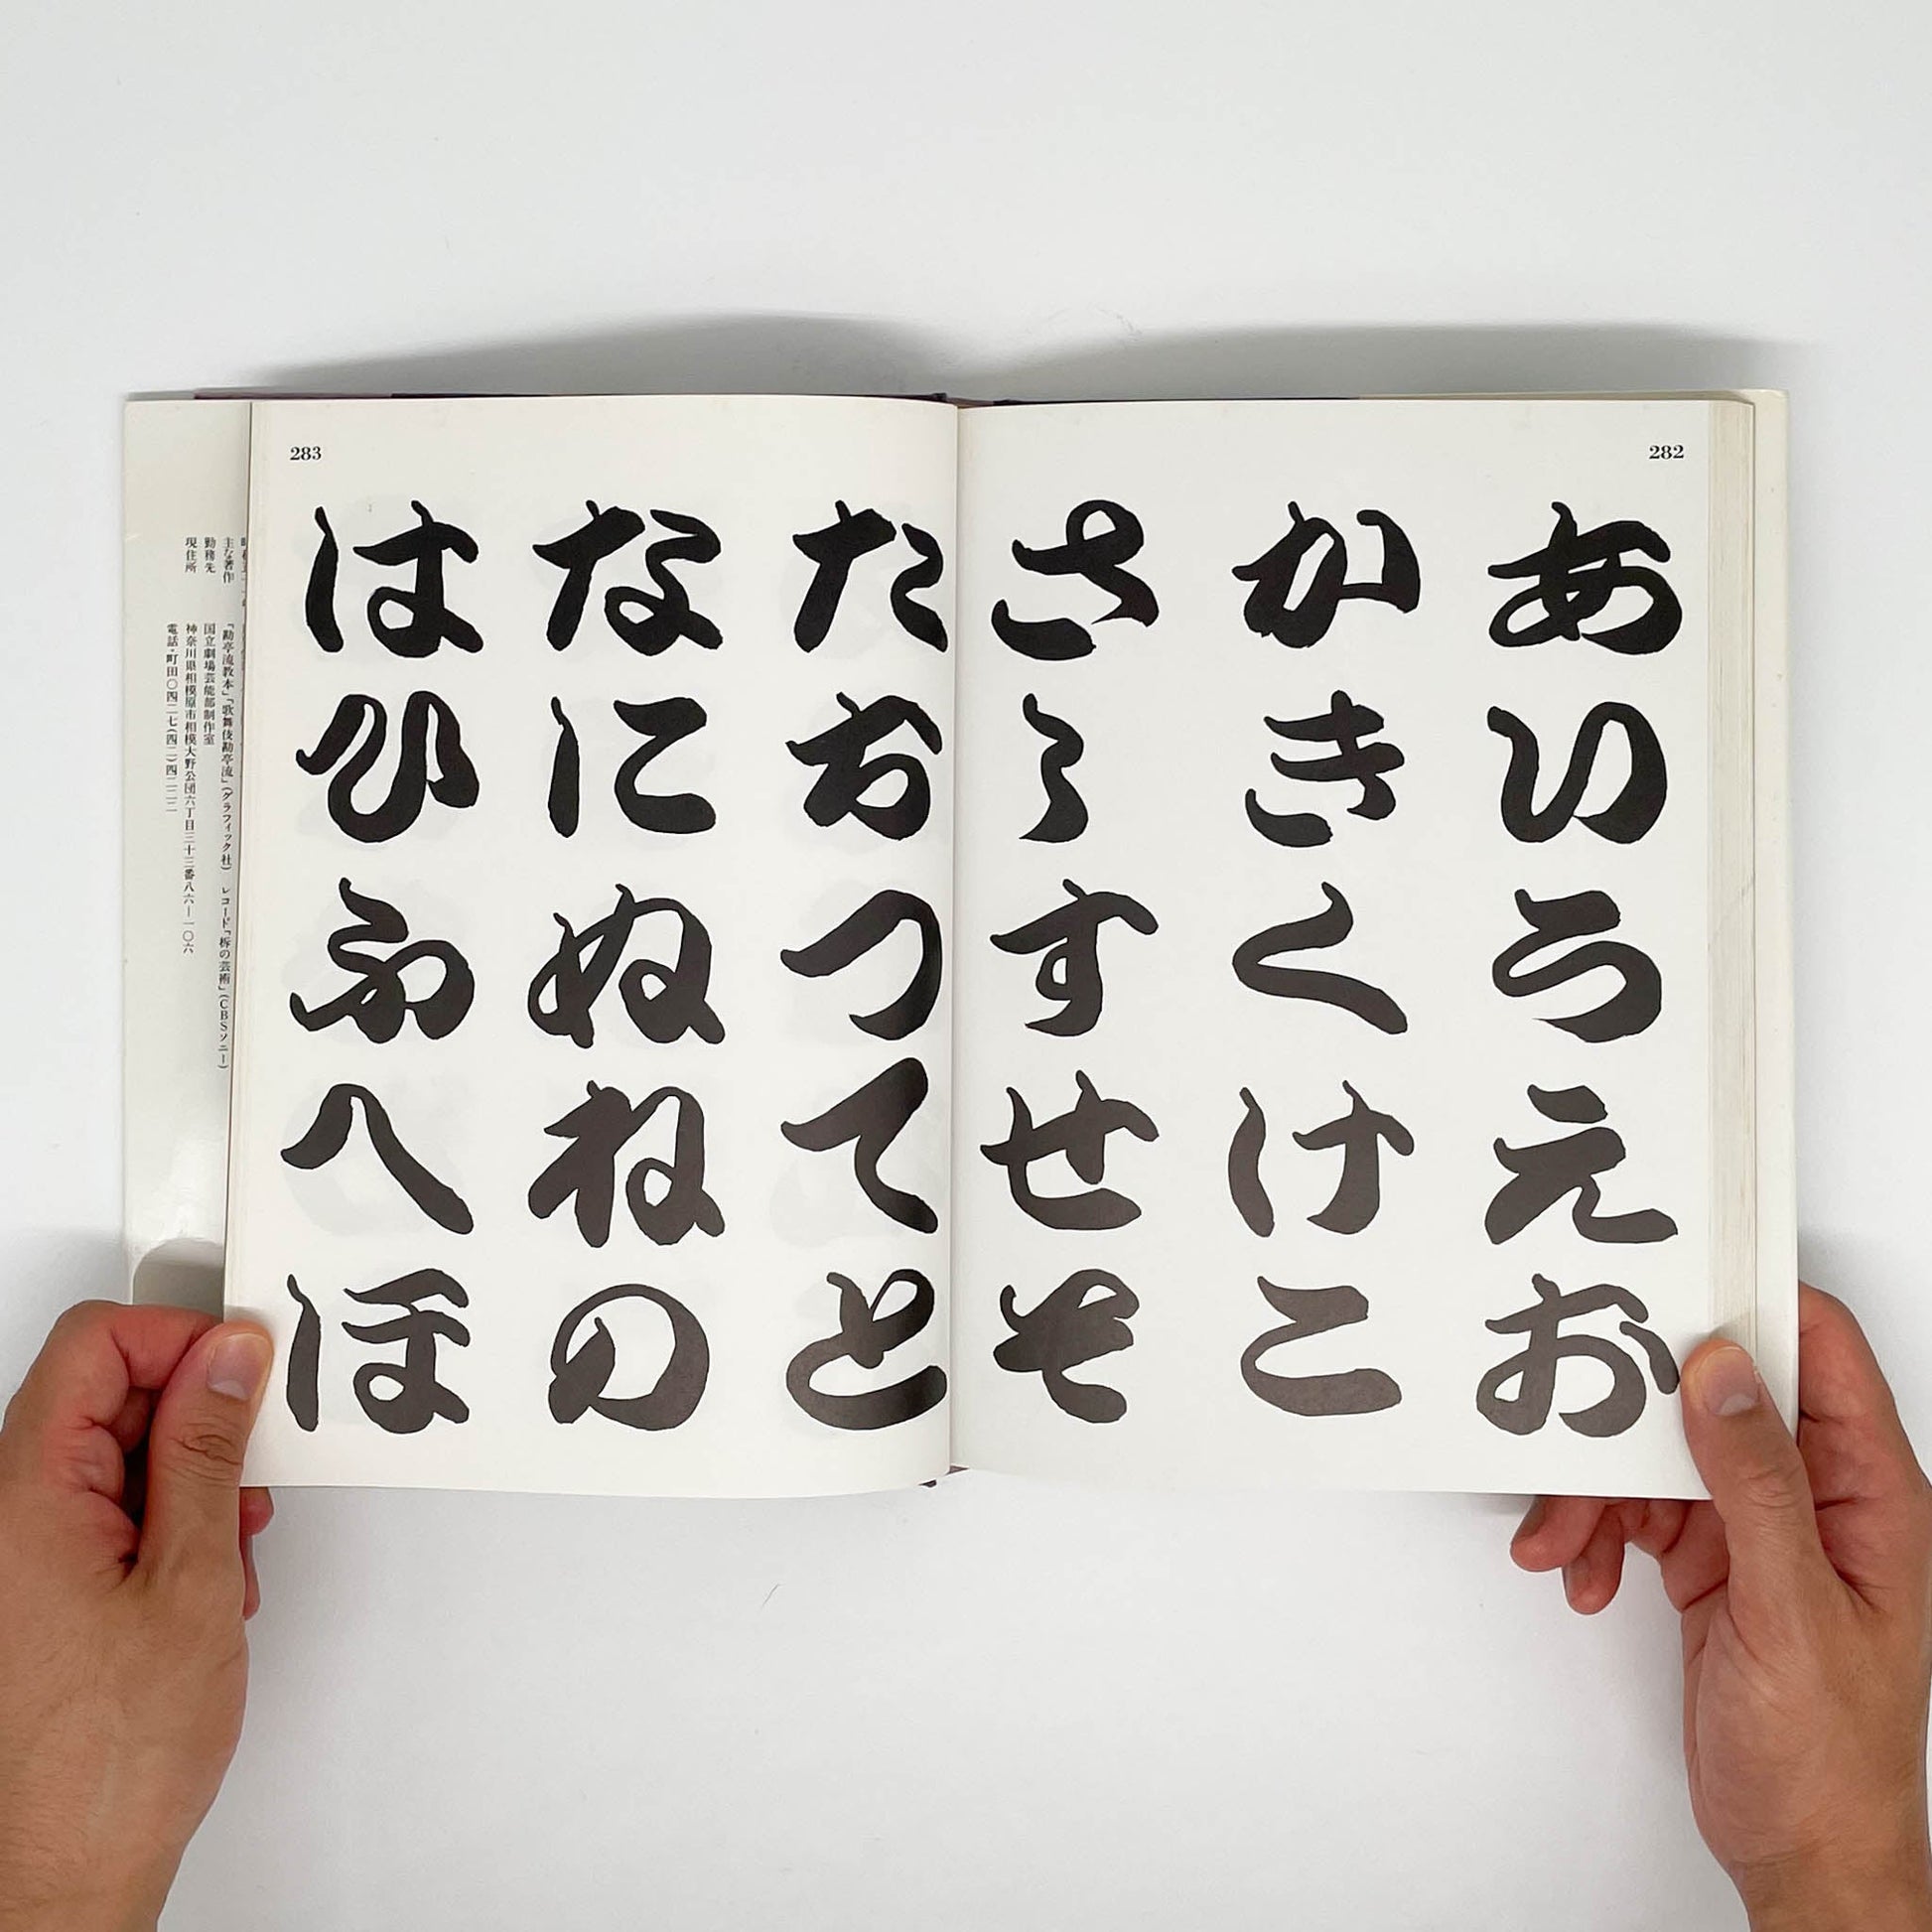 282
あいうえお
かきくけこ
さしすせそ
283
たちつてと
なにぬねの
はひふへほ
主な著作 「勘亭流教本」「歌舞伎勘亭流」(グラフィック社) レコード「柝の芸術」(CBSソニー)
勤務先 国立劇場芸能部制作室
現住所 神奈川県相模原市相模大野公団六丁目三十三番八六―一〇六
電話・町田〇四二七(四二)四二二二